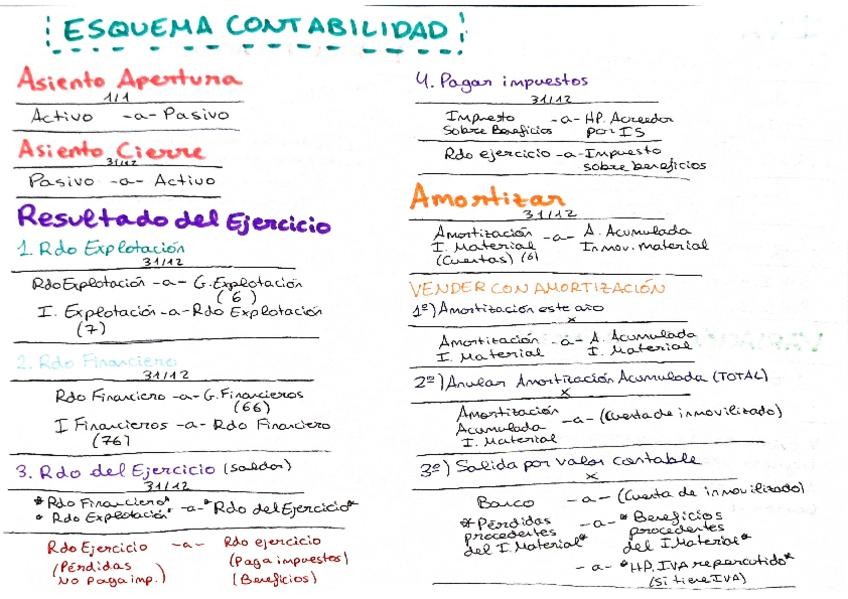 ESQUEMA CONTABILIDAD
Asiento Apertura
1/1
Activo -a- Pasivo
Asiento Cierre
31/12
Pasivo -a- Activo
Resultado del Ejercicio
1. Rdo Explotación
31/12
Rdo Explotación -a- G. Explotación
(6)
I. Explotación -a- Rdo Explotación
(7)
2. Rdo Financiero
31/12
Rdo Financiero -a- G. Financieros
(66)
I Financieros -a- Rdo Financiero
(76)
3. Rdo del Ejercicio (saldor)
31/12
*Rdo Financiero*
* Rdo Explotación* -a- *Rdo del Ejercicio*
Rdo Ejercicio -a- Rdo ejercicio
(Pérdidas (Paga impuestos)
No paga imp.) (Beneficios)
4. Pagar impuestos
31/12
Impuesto -a- HP. Acreedor
sobre Beneficios por IS
Rdo ejercicio -a- Impuesto
sobre beneficios
Amortizar
31/12
Amortización -a- A. Acumulada
I. Material Inmov. material
(Cuentas) (6)
VENDER CON AMORTIZACIÓN
1º) Amortización este año
x
Amortización -a- A. Acumulada
I. Material I. Material
2º) Anular Amortización Acumulada (TOTAL)
x
Amortización
Acumulada -a- (Cuenta de inmovilizado)
I. Material
3º) Salida por valor contable
x
Banco -a- (Cuenta de inmovilizado)
*Pérdidas -a- *Beneficios
procedentes procedentes
del I. Material* del I. Material*
-a- *HP. IVA repercutido*
(si tiene IVA)